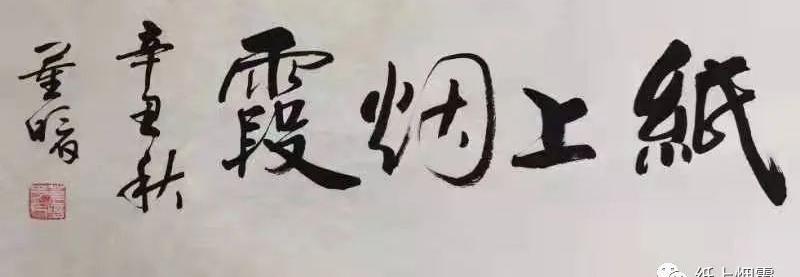 紙上烟霞
辛丑秋
董晴
纸上烟霞